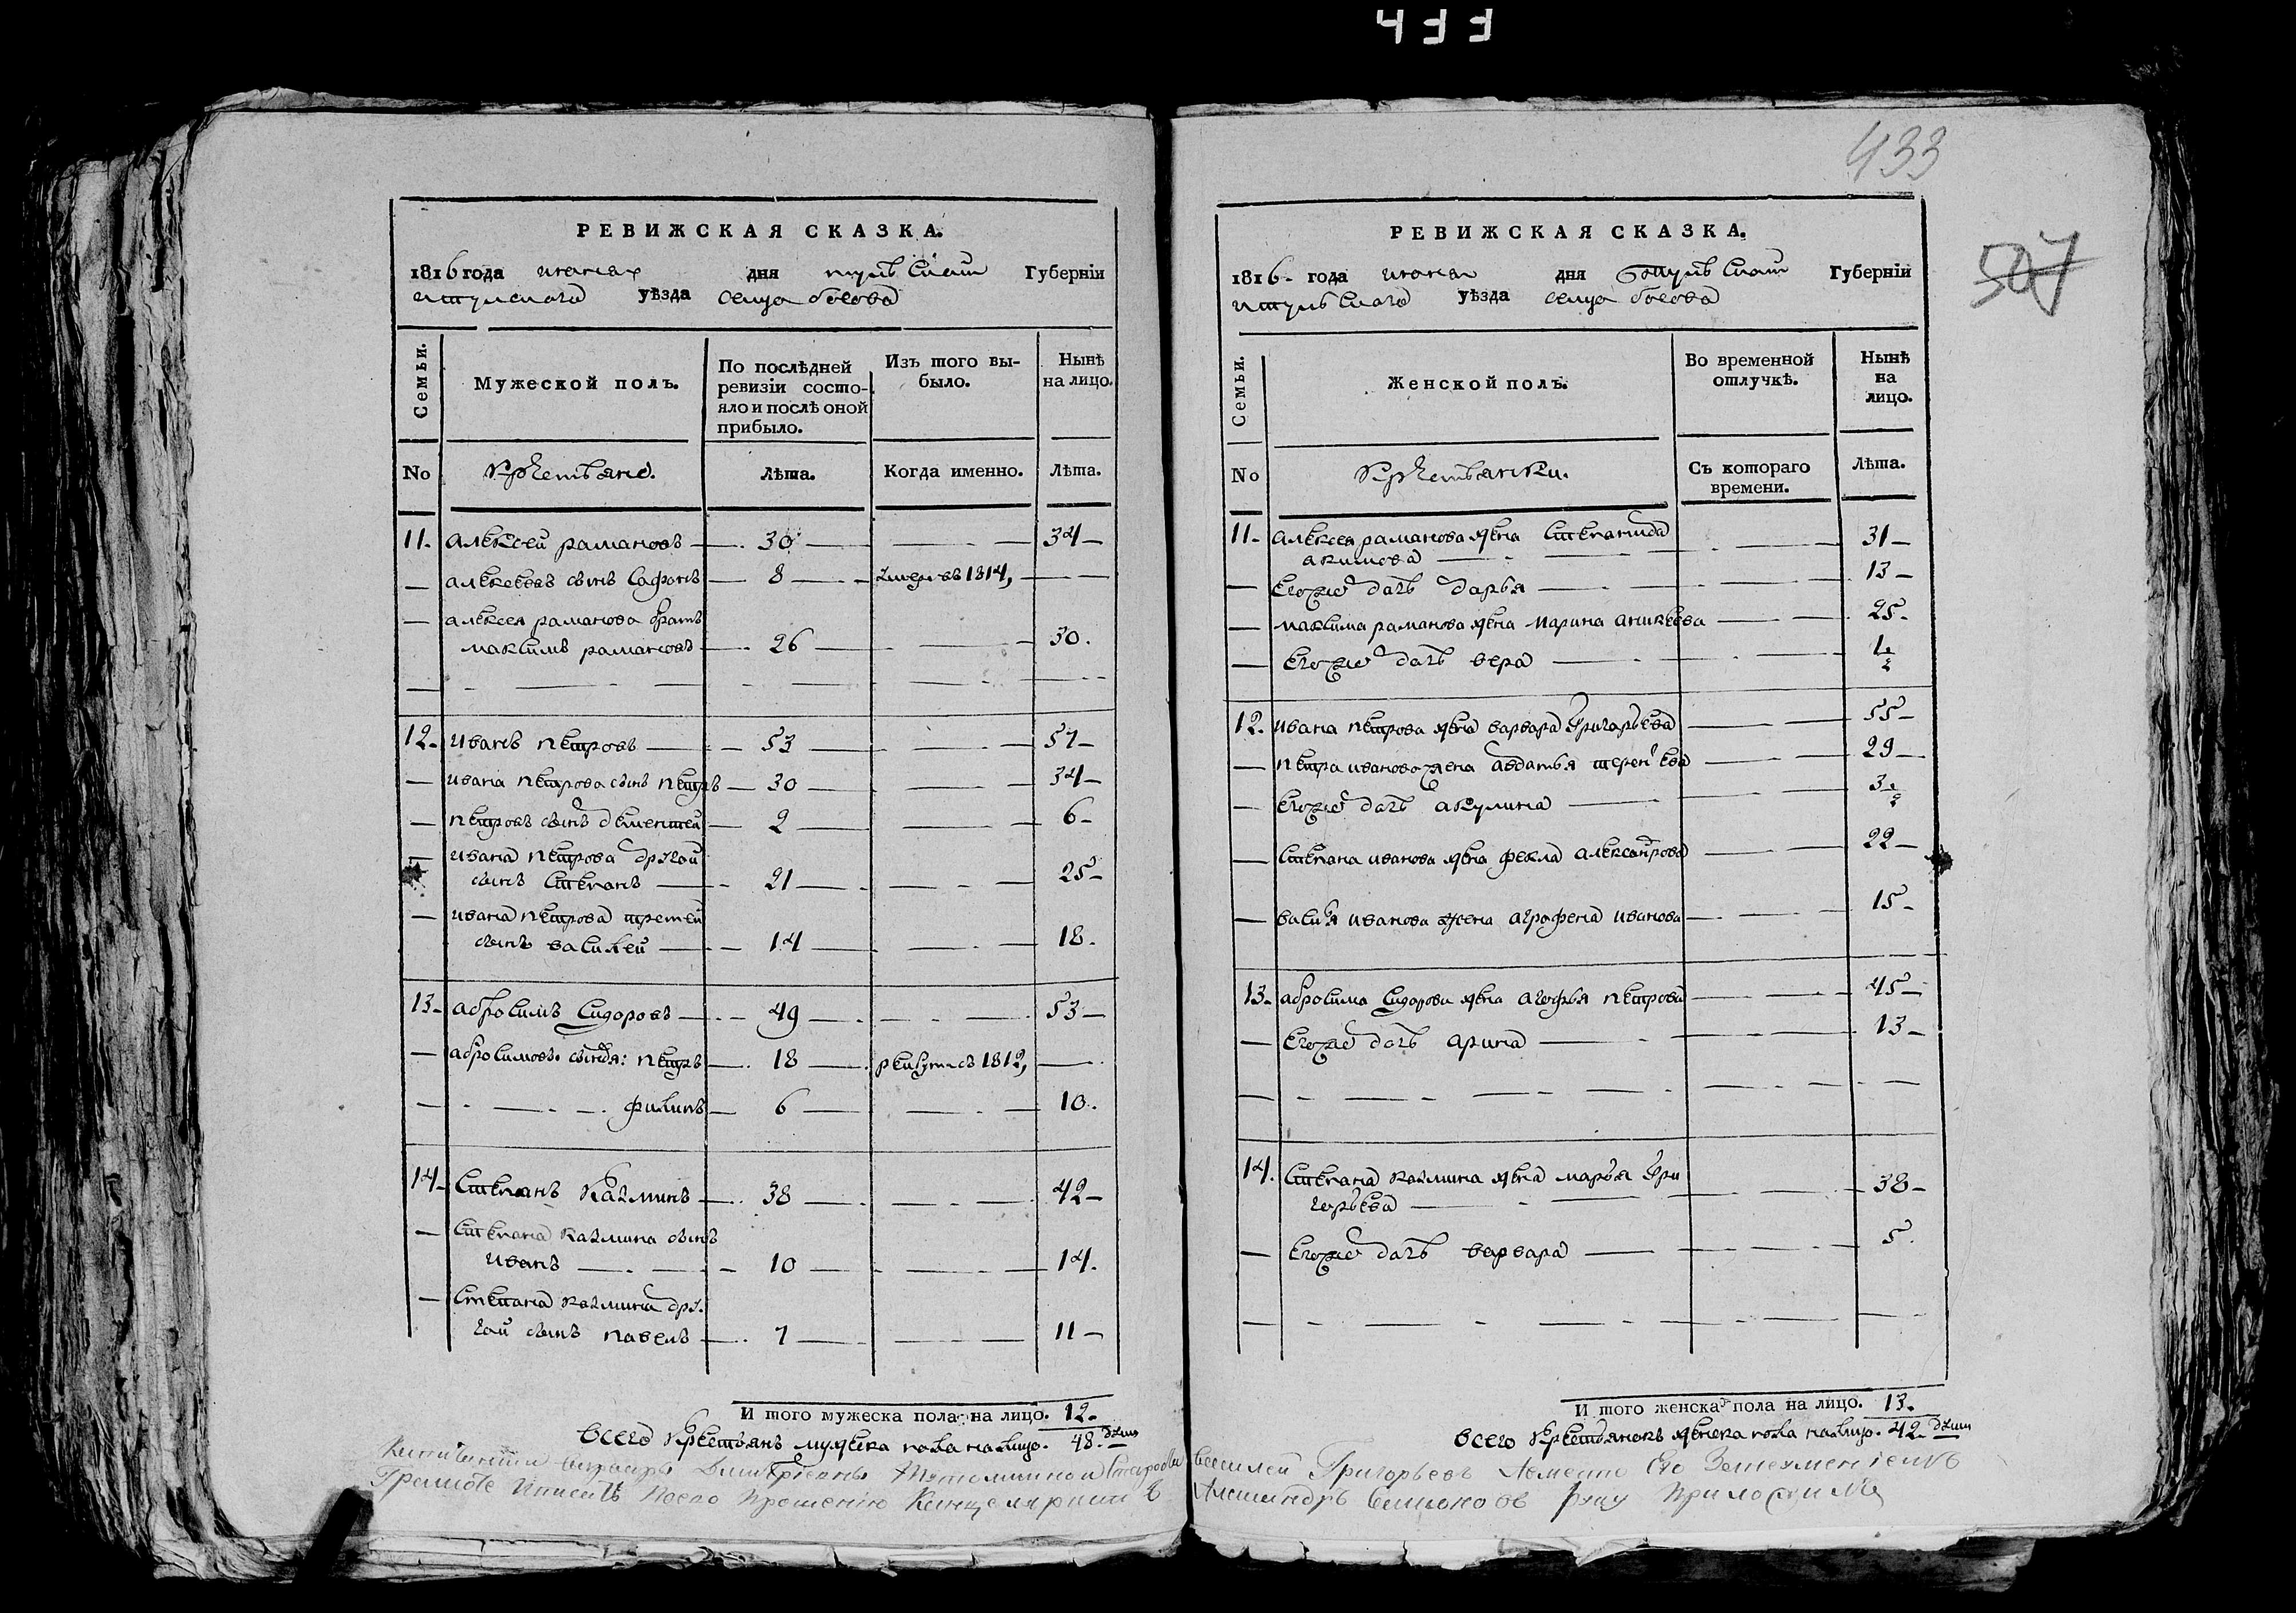 433
433
507
РЕВИЖСКАЯ СКАЗКА.
1816 года июня дня тульской Губерніи
тульскаго уѣзда сельца боева
Семьи.
Мужеской полъ.
По послѣдней ревизіи состояло и послѣ оной прибыло.
Изъ того выбыло.
Нынѣ на лицо.
No
Крестьяне.
Лѣта.
Когда именно.
Лѣта.
11. алексей рамановъ 30 34
алексеевъ сынъ сафонъ 8 умеръ въ 1814,
алексея раманова братъ
максимъ рамановъ 26 30.
12. иванъ петровъ 53 57
ивана петрова сынъ петръ 30 34
петровъ сынъ дементей 2 6
ивана петрова другой
сынъ степанъ 21 25
ивана петрова третей
сынъ василей 14 18.
13. абросимъ сидоровъ 49 53
абросимовы сыновья: петръ 18 рекрутъ съ 1812,
филипъ 6 10.
14. степанъ казминъ 38 42
степана казмина сынъ
иванъ 10 14.
степана казмина дру
гой сынъ павелъ 7 11
И того мужеска пола на лицо. 12.
всего крестьянъ мужеска пола на лицо. 48. душъ
РЕВИЖСКАЯ СКАЗКА.
1816 года июня дня тульской Губерніи
тульскаго уѣзда сельца боева
Семьи.
Женской полъ.
Во временной отлучкѣ.
Нынѣ на лицо.
No
Крестьянки.
Съ котораго времени.
Лѣта.
11. алексея раманова жена степанида
акимова 31
Егоже дочь дарья 13
максима раманова жена марина аникеева 25.
Егоже дочь вера 1/2
12. ивана петрова жена варвара григорьева 55
петра иванова жена авдатья терентьева 29
Егоже дочь акулина 3 1/2
степана иванова жена фекла александрова 22
василья иванова жена аграфена иванова 15
13. абросима сидорова жена агафья петрова 45
Егоже дочь арина 13
14. степана казмина жена марья гри
горьева 38
Егоже дочь варвара 5.
И того женска пола на лицо. 13.
всего крестьянокъ женска пола на лицо. 42. души
Дмитріевны староста василей Григорьевъ
Грамоте писать по его прошению канцеляристъ Александръ руку приложилъ